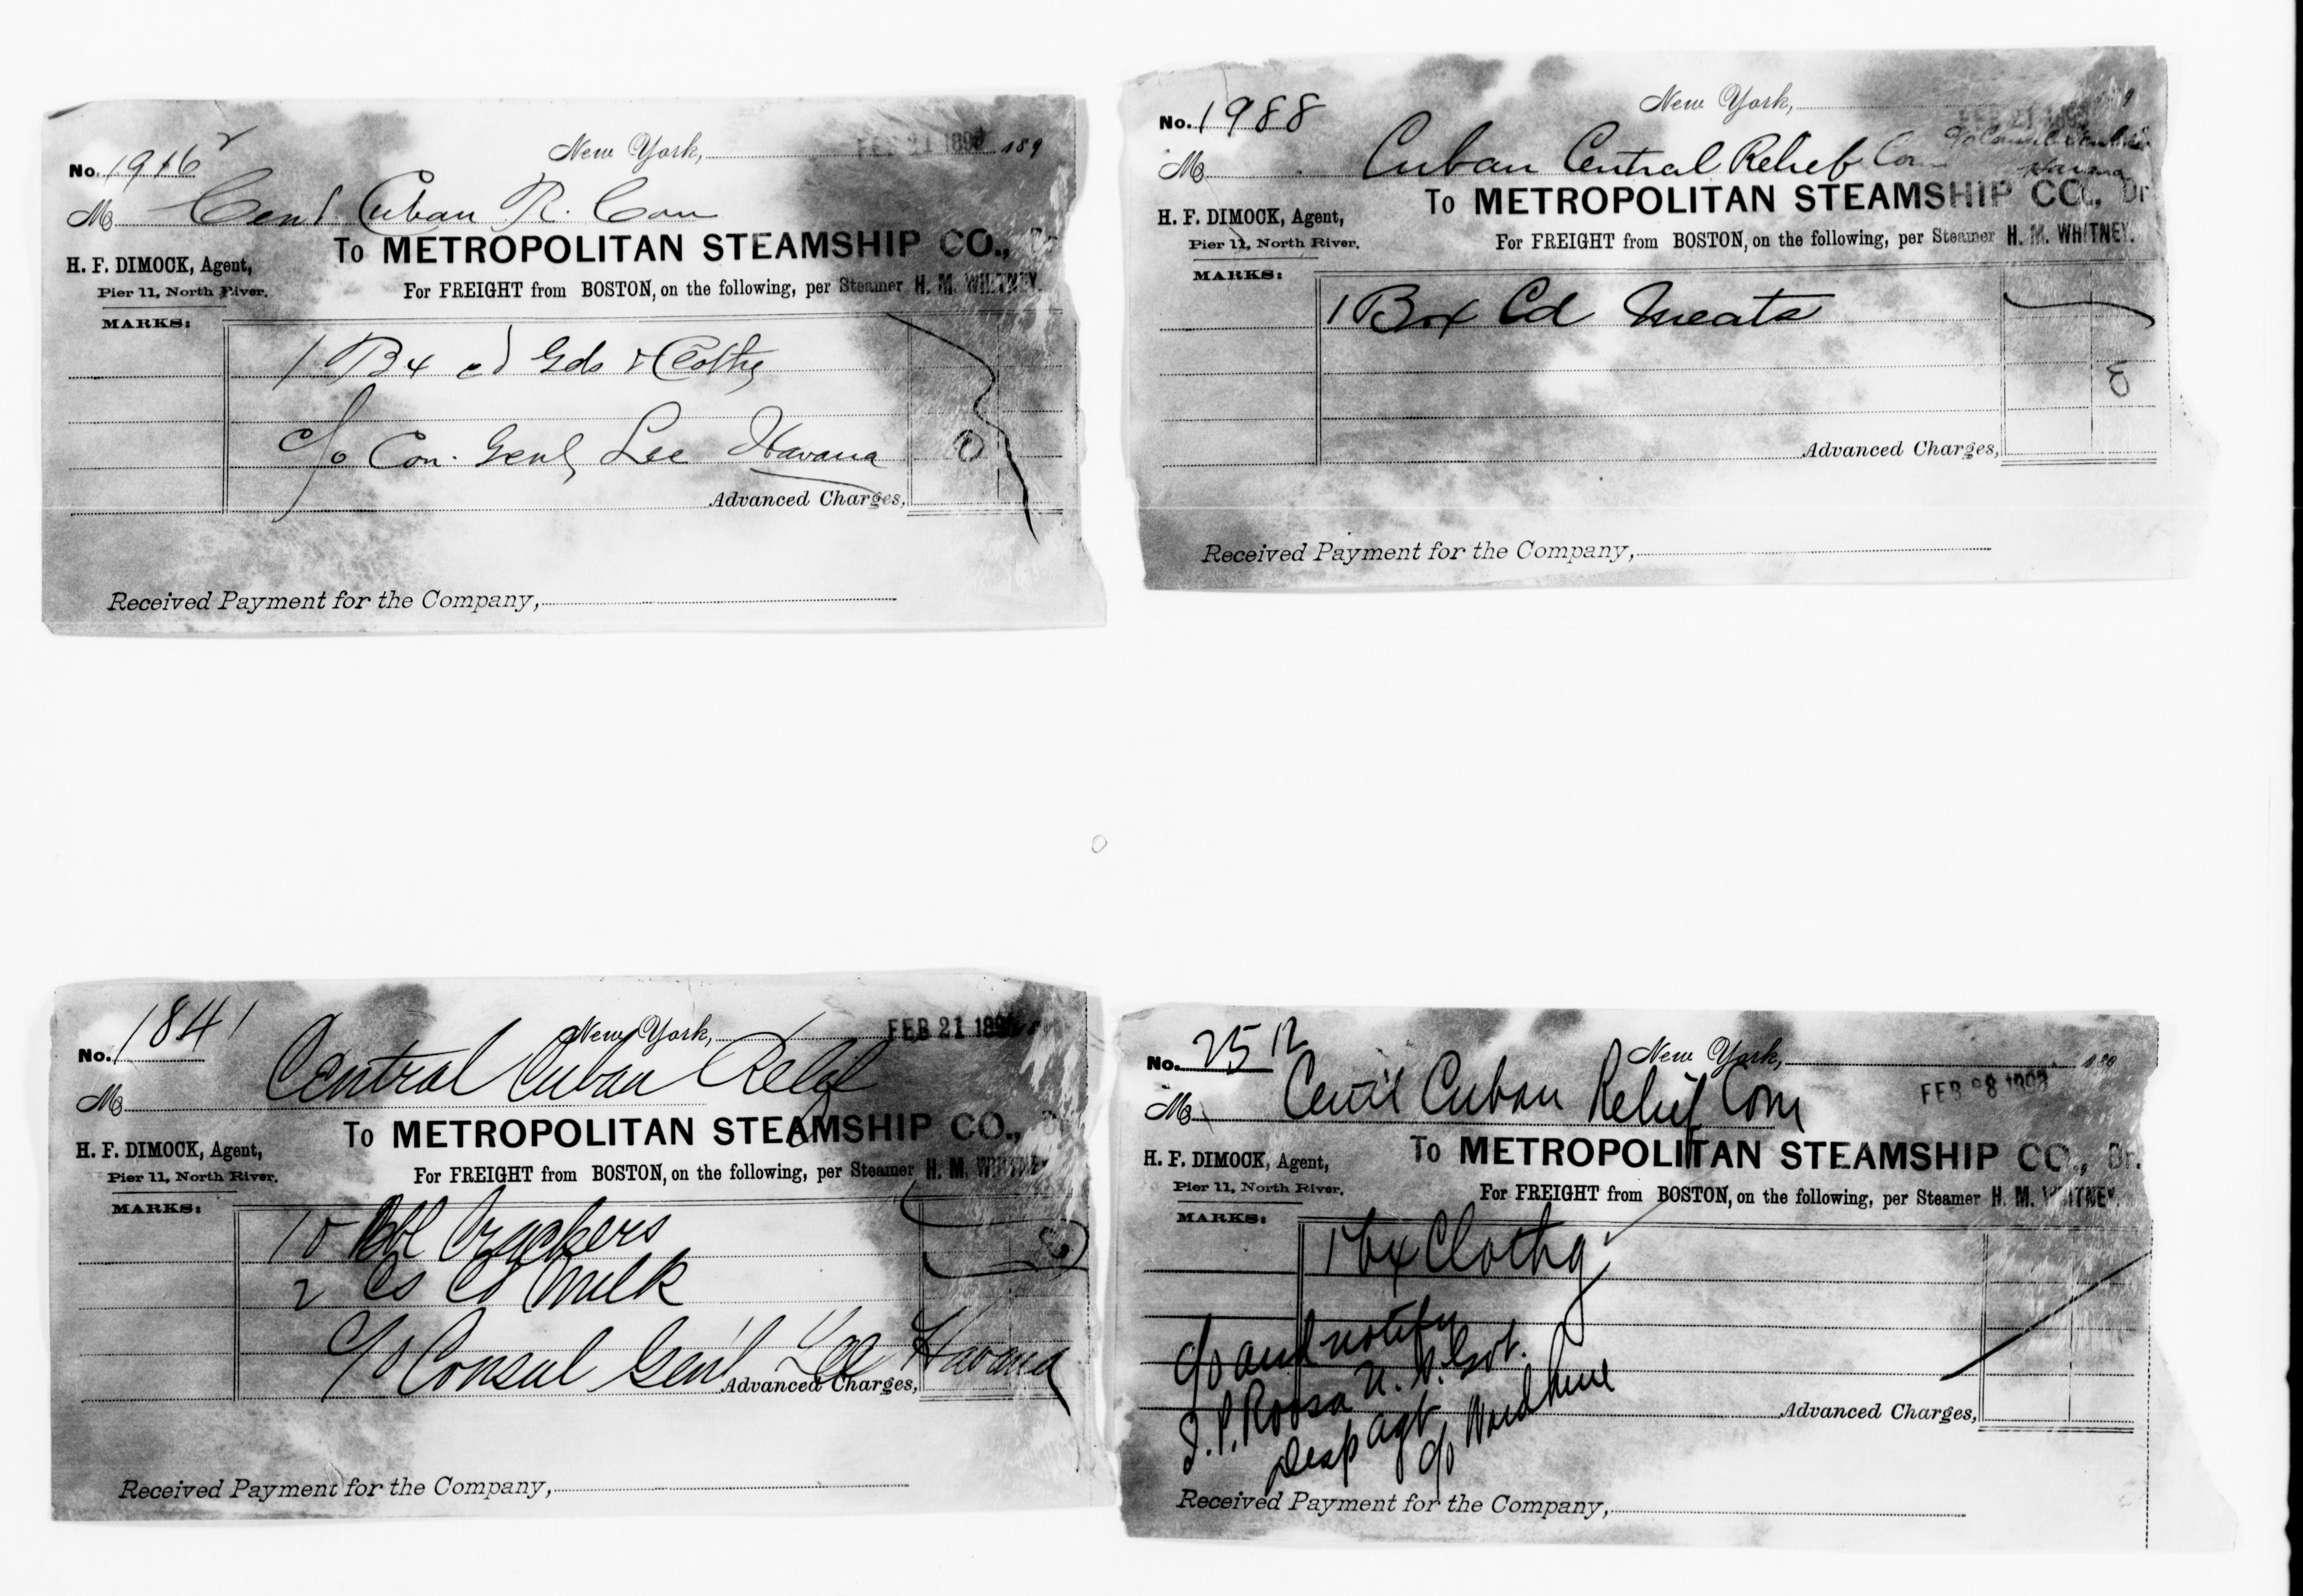 No. 1916 2
New York, FEB 21 1898 189
M Cent Cuban R. Com
To METROPOLITAN STEAMSHIP CO., Dr
H. F. DIMOCK, Agent,
Pier 11, North River.
For FREIGHT from BOSTON, on the following, per Steamer H. M. WHITNEY.
MARKS:
1 Bx cd Gds & Clothg
c/o Con. Genl Lee Havana
0
Advanced Charges,
Received Payment for the Company,
No. 1988
New York, FEB 21 1898 9
M Cuban Central Relief Com c/o Consul Genl Lee
Havana
To METROPOLITAN STEAMSHIP CO., Dr
H. F. DIMOCK, Agent,
Pier 11, North River.
For FREIGHT from BOSTON, on the following, per Steamer H. M. WHITNEY.
MARKS:
1 Box Cd Meats
0
Advanced Charges,
Received Payment for the Company,
No. 1841
New York, FEB 21 1898
M Central Cuban Relief
To METROPOLITAN STEAMSHIP CO., Dr
H. F. DIMOCK, Agent,
Pier 11, North River.
For FREIGHT from BOSTON, on the following, per Steamer H. M. WHITNEY
MARKS:
10 Bbl Crackers
2 Cs Cd Milk
c/o Consul Gen'l Lee Havana
Advanced Charges,
Received Payment for the Company,
No. 2512
New York, 189
FEB 28 1898
M Cent'l Cuban Relief Com
To METROPOLITAN STEAMSHIP CO., Dr.
H. F. DIMOCK, Agent,
Pier 11, North River.
For FREIGHT from BOSTON, on the following, per Steamer H. M. WHITNEY.
MARKS:
1 bx Clothg
c/o and notify
J. P. Roosa U. S. Govt.
Desp Agt
c/o Ward Line
Advanced Charges,
Received Payment for the Company,